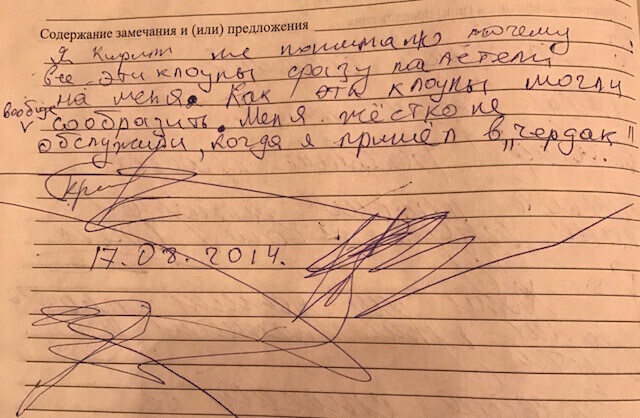 Содержание замечания и (или) предложения
Я Кирилл не понимаю почему
все эти клоуны сразу налетели
на меня. Как эта клоуны могли
вообще
сообразить. Меня жёстко не
обслужили, когда я пришёл в „чердак"
17.08.2014.